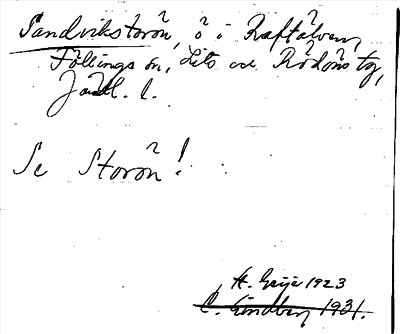 Sandvikstorön, ö i Kaftälven,
Föllings sn, Lits o. Rödöns tg,
Jämtl. l.
Se Storön!
H. Geijer 1923
C. Lindberg 1931.